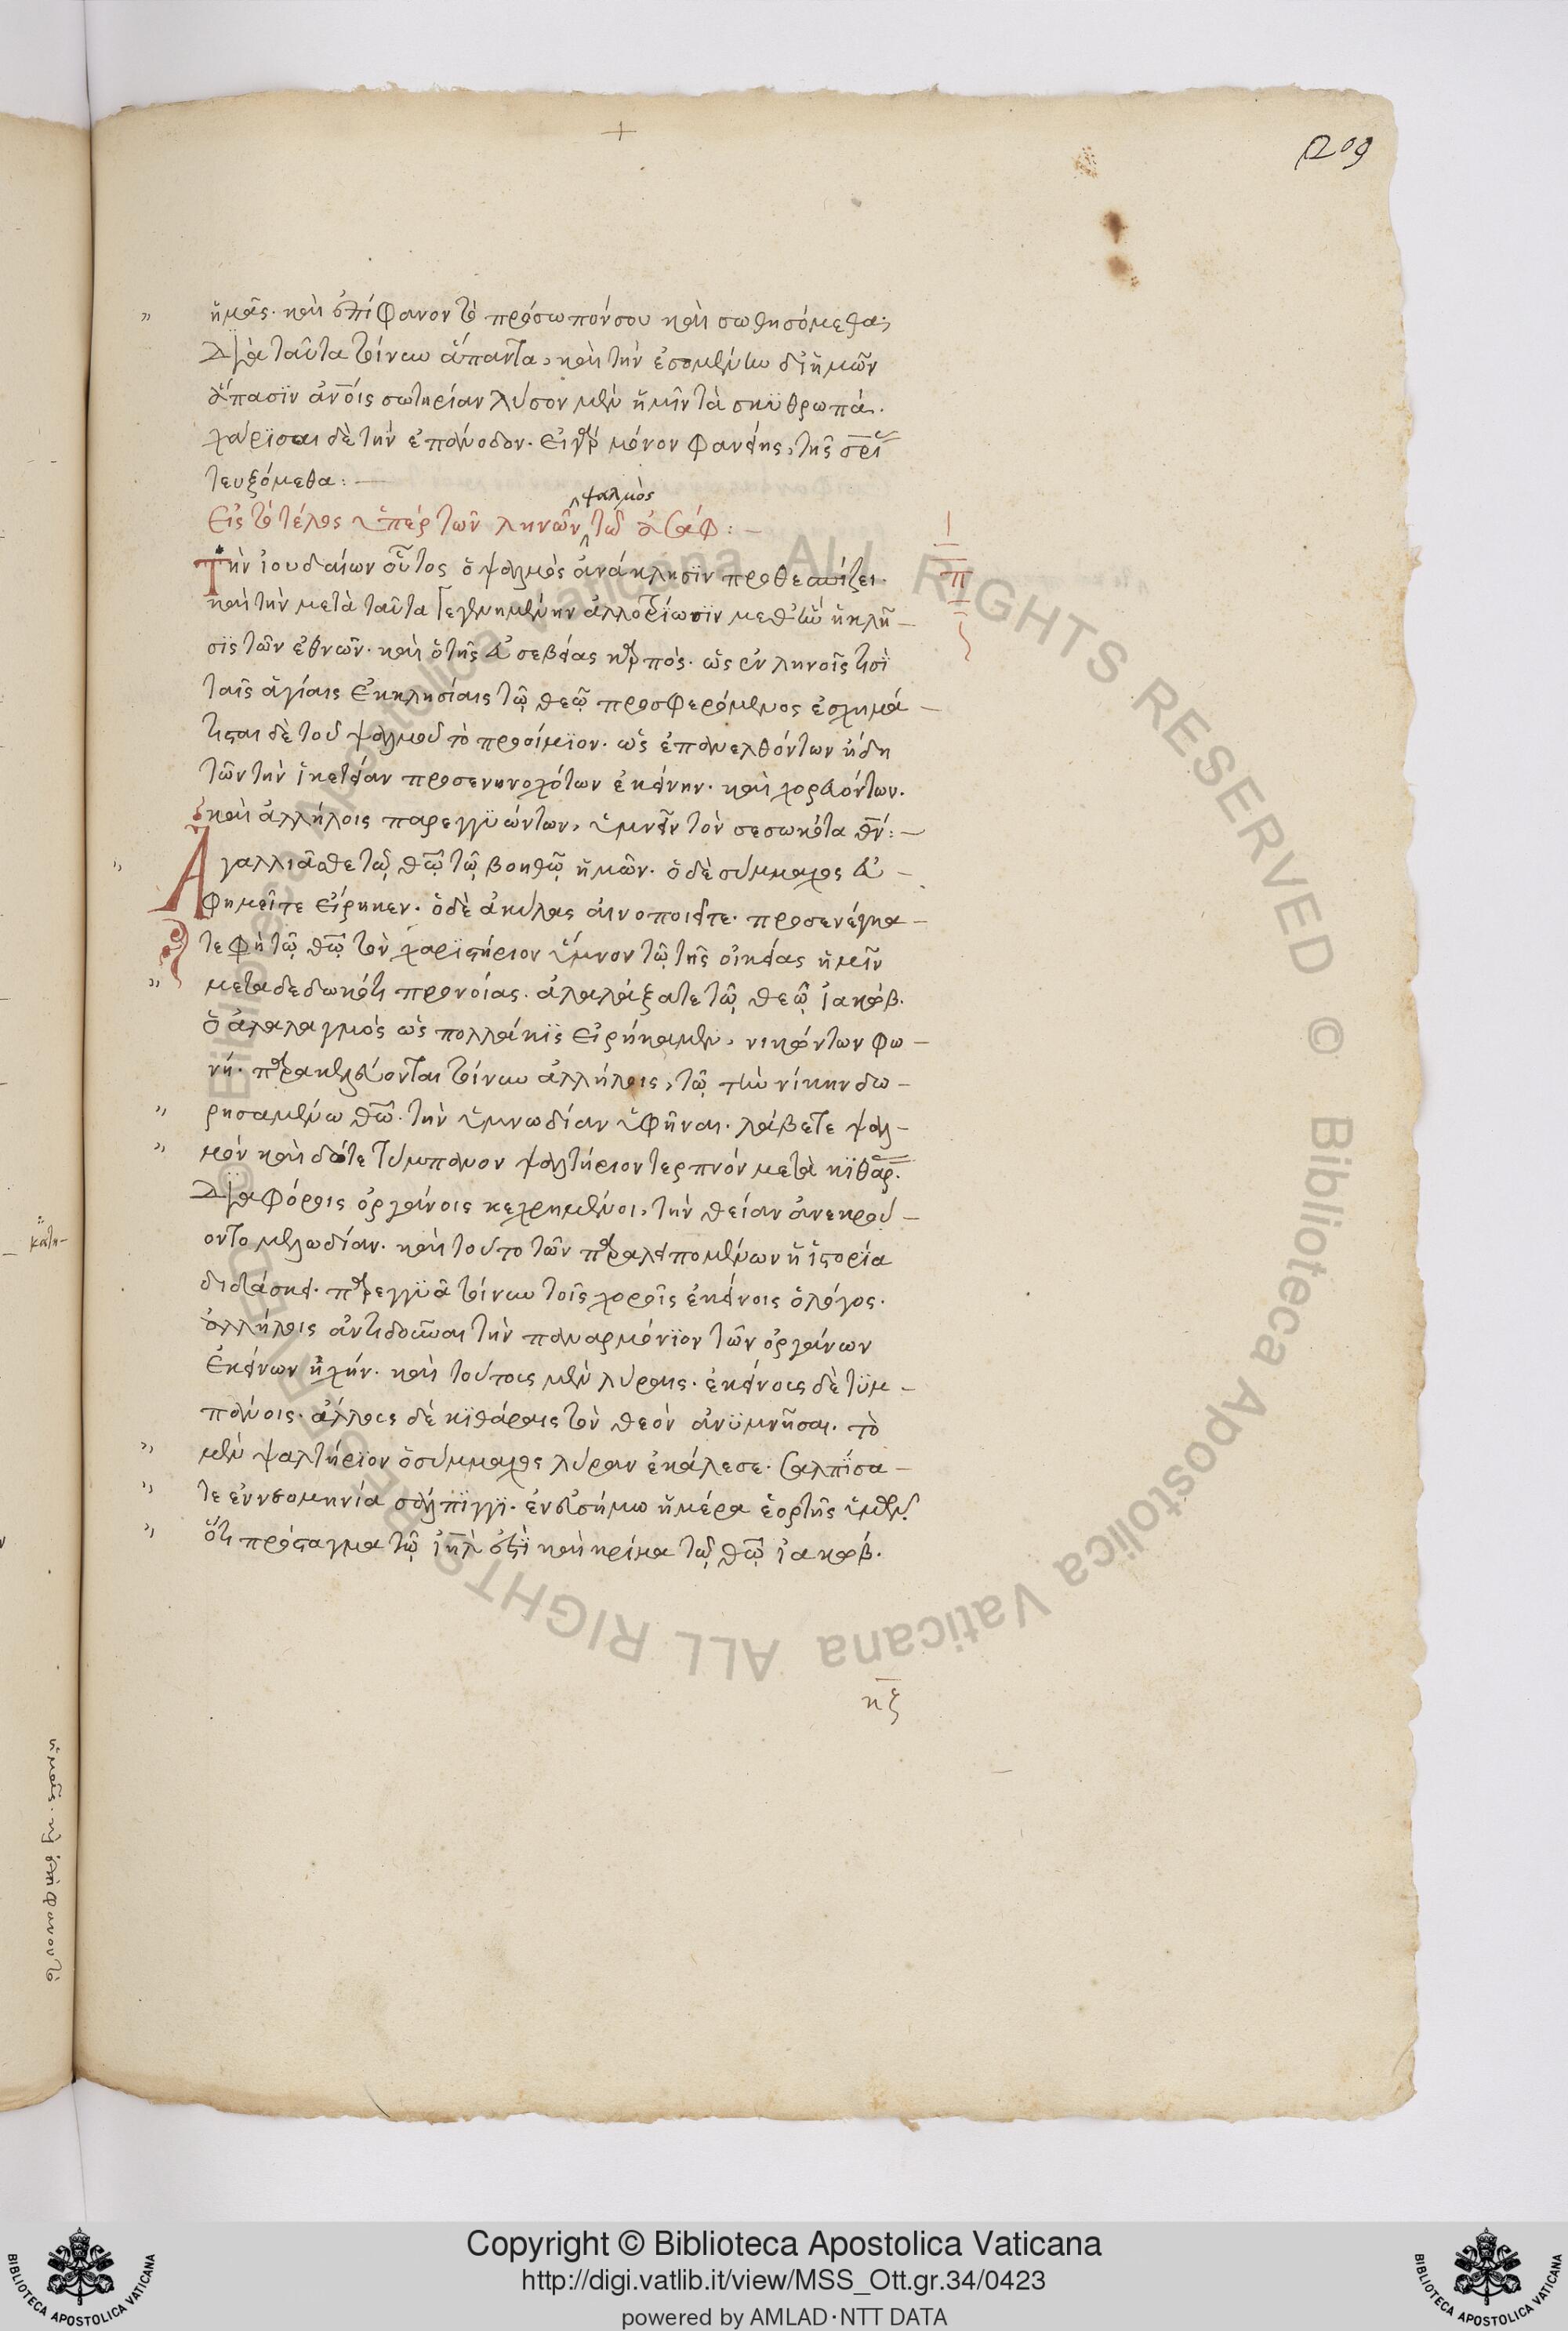 209
ἡμᾶς· καὶ ἐπίφανον τὸ πρόσωπόν σου καὶ σωθησόμεθα;
Διὰ ταῦτα τοίνυν ἅπαντα, καὶ τὴν ἐσομένην δι ἡμῶν
ἅπασϊν ἀν̅οις σωτηρίαν λύσον μὲν ἡμῖν τὰ σκυθρωπά.
χάρϊσαι δὲ τὴν ἐπάνοδον. εἰ γὰρ μόνον φανείης, τῆς σρ̅ι
τευξόμεθα: —
ψαλμὸς
Εἰς τὸ τέλος ὑπὲρ τῶν ληνῶν τῷ ἀσάφ: —
π
Τὴν ἰουδαίων οὗτος ὁ ψαλμὸς ἀνάκλησϊν προθεσπίζει.
καὶ τὴν μετὰ ταῦτα γεγενημένην ἀλλοτρίωσϊν μεθ ἣν ἡ κλῆ —
σϊς τῶν ἐθνῶν. καὶ ὁ τῆς εὐσεβείας καρπός. ὡς ἐν ληνοῖς τισὶ
ταῖς ἁγίαις ἐκκλησίαις τῷ θεῷ προσφερόμενος ἐσχημά —
τισται δὲ τοῦ ψαλμοῦ τὸ προοίμϊον. ὡς ἐπανελθόντων ἤδη
τῶν τὴν ἱκετείαν προσενηνοχότων ἐκείνην. καὶ χορευόντων.
καὶ ἀλλήλοις παρεγγϋώντων, ὑμνεῖν τὸν σεσωκότα θν̅: —
Ἀγαλλιᾶσθε τῷ θω̅ τῷ βοηθῷ ἡμῶν. ὁ δὲ σύμμαχος εὐ —
φημεῖτε εἴρηκεν. ὁ δὲ ἀκύλας αἰνοποιεῖτε. προσενέγκα —
τε φη τῷ θω̅ τὸν χαρϊστήριον ὕμνον τῷ τῆς οἰκείας ἡμῖν
μεταδεδωκότι προνοίας. ἀλαλάξατε τῷ θεῷ ἰακώβ.
ὁ ἀλαλαγμός ὡς πολλάκϊς εἰρήκαμεν, νικώντων φω —
νή. παρακελεύονται τοίνυν ἀλλήλοις, τῷ τὴν νίκην δω —
ρησαμένω θω̅. τὴν ὑμνωδίαν ὑφῆναι. λάβετε ψαλ —
μόν καὶ δότε τύμπανον ψαλτήριον τερπνόν μετὰ κϊθάρ.
Διαφόροις ὀργάνοις κεχρημένοι, τὴν θείαν ἀνεκρού —
οντο μελωδίαν. καὶ τοῦτο τῶν παραλειπομένων ἡ ἱστορία
διδάσκει. παρεγγϋᾶ τοίνυν τοῖς χοροῖς ἐκείνοις ὁ λόγος.
ἀλλήλοις ἀντιδοῦναι τὴν παναρμόνϊον τῶν ὀργάνων
ἐκείνων ἠχήν. καὶ τούτοις μὲν λύραις. ἐκείνοις δὲ τϋμ —
πάνοις. ἄλλοις δὲ κϊθάραις τὸν θεόν ἀνϋμνῆσαι. τὸ
μὲν ψαλτήρϊον ὁ σύμμαχος λύραν ἐκάλεσε. Σαλπίσα —
τε ἐν νεομηνία σάλπϊγγϊ. ἐν εὐσήμω ἡμέρα ἑορτῆς ὑμῶν
ὅτι πρόσταγμα τῷ ιη̅λ ἐστὶ καὶ κρίμα τῷ θω̅ ἰακώβ.
ἡμᾶς· καὶ ἐπίφανον τὸ
Copyright © Biblioteca Apostolica Vaticana
http://digi.vatlib.it/view/MSS_Ott.gr.34/0423
powered by AMLAD·NTT DATA
BIBLIOTECA APOSTOLICA VATICANA
BIBLIOTECA APOSTOLICA VATICANA
© Biblioteca Apostolica Vaticana ALL RIGHTS RESERVED © Biblioteca Apostolica Vaticana ALL RIGHTS RESERVED